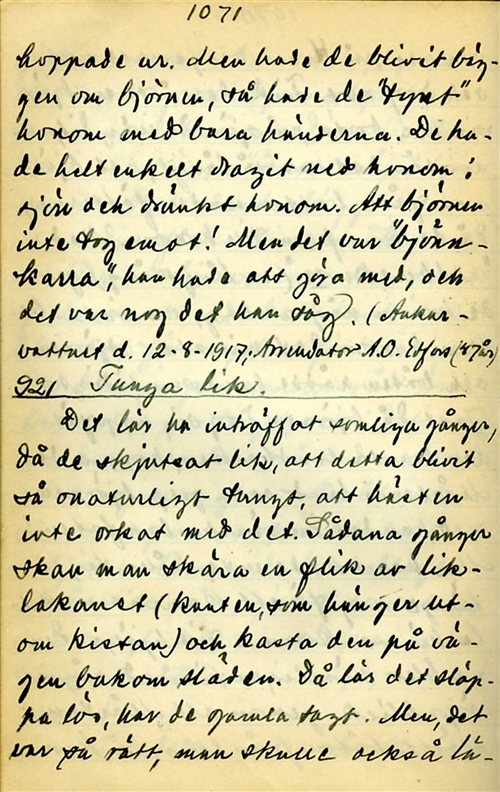 1071
hoppade ur. Men hade de blivit bön-
gen om björnen, så hade de "dynt"
honom med bara händerna. De ha-
de helt enkelt dragit ned honom i
sjön och dränkt honom. Att björnen
inte tog emot! Men det var "björn-
karra", han hade att göra med, och
det var nog det han såg. (Ankar-
vattnet d. 12-8-1917, Arrendator A.O. Edfors (87 år)
921 Tunga lik.
Det lär ha inträffat somliga gånger,
då de skjutsat lik, att detta blivit
så onaturligt tungt, att hästen
inte orkat med det. Sådana gånger
skau man skära en flik av lik-
lakanet (kanten, som hänger ut-
om kistan) och kasta den på vä-
gen bakom släden. Då lär det släp-
pa lös, har de gamla sagt. Men, det
var så rätt, man skulle också lä-